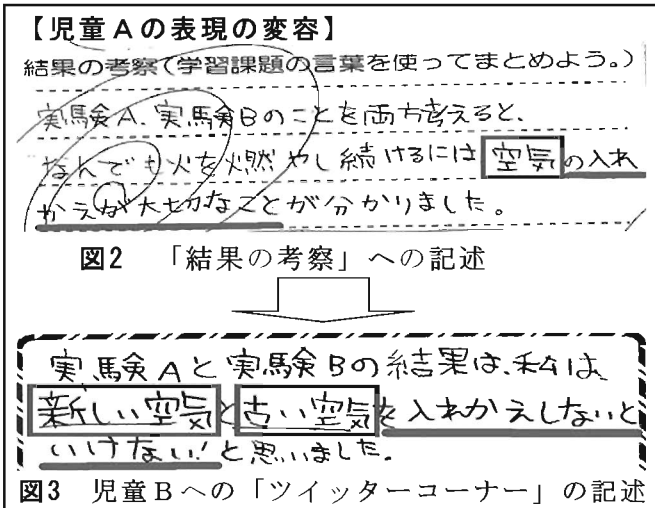 【児童Aの表現の変容】
結果の考察(学習課題の言葉を使ってまとめよう。)
実験A、実験Bのことを両方考えると、
なんでも火を燃やし続けるには空気の入れ
かえが大切なことが分かりました。
図2 「結果の考察」への記述
実験Aと実験Bの結果は、私は、
新しい空気と古い空気を入れかえしないと
いけない!と思いました。
図3 児童Bへの「ツイッターコーナー」の記述